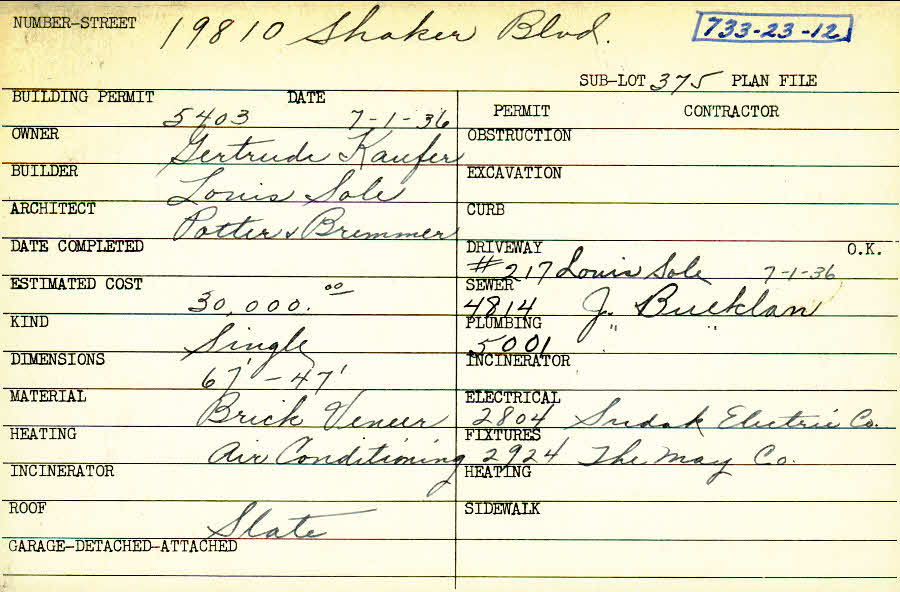 NUMBER-STREET 19810 Shaker Blvd. 733-23-12
SUB-LOT 375 PLAN FILE
BUILDING PERMIT 5403 DATE 7-1-36
OWNER Gertrude Kaufer
BUILDER Louis Sole
ARCHITECT Potter & Bremmer
DATE COMPLETED
ESTIMATED COST 30,000.00
KIND Single
DIMENSIONS 67' - 47'
MATERIAL Brick Veneer
HEATING Air Conditioning
INCINERATOR
ROOF Slate
GARAGE-DETACHED-ATTACHED
PERMIT CONTRACTOR
OBSTRUCTION
EXCAVATION
CURB
DRIVEWAY #217 Louis Sole 7-1-36 O.K.
SEWER 4814 J. Bucklan
PLUMBING 5001 " "
INCINERATOR
ELECTRICAL 2804 Electric Co.
FIXTURES 2924 The May Co.
HEATING
SIDEWALK